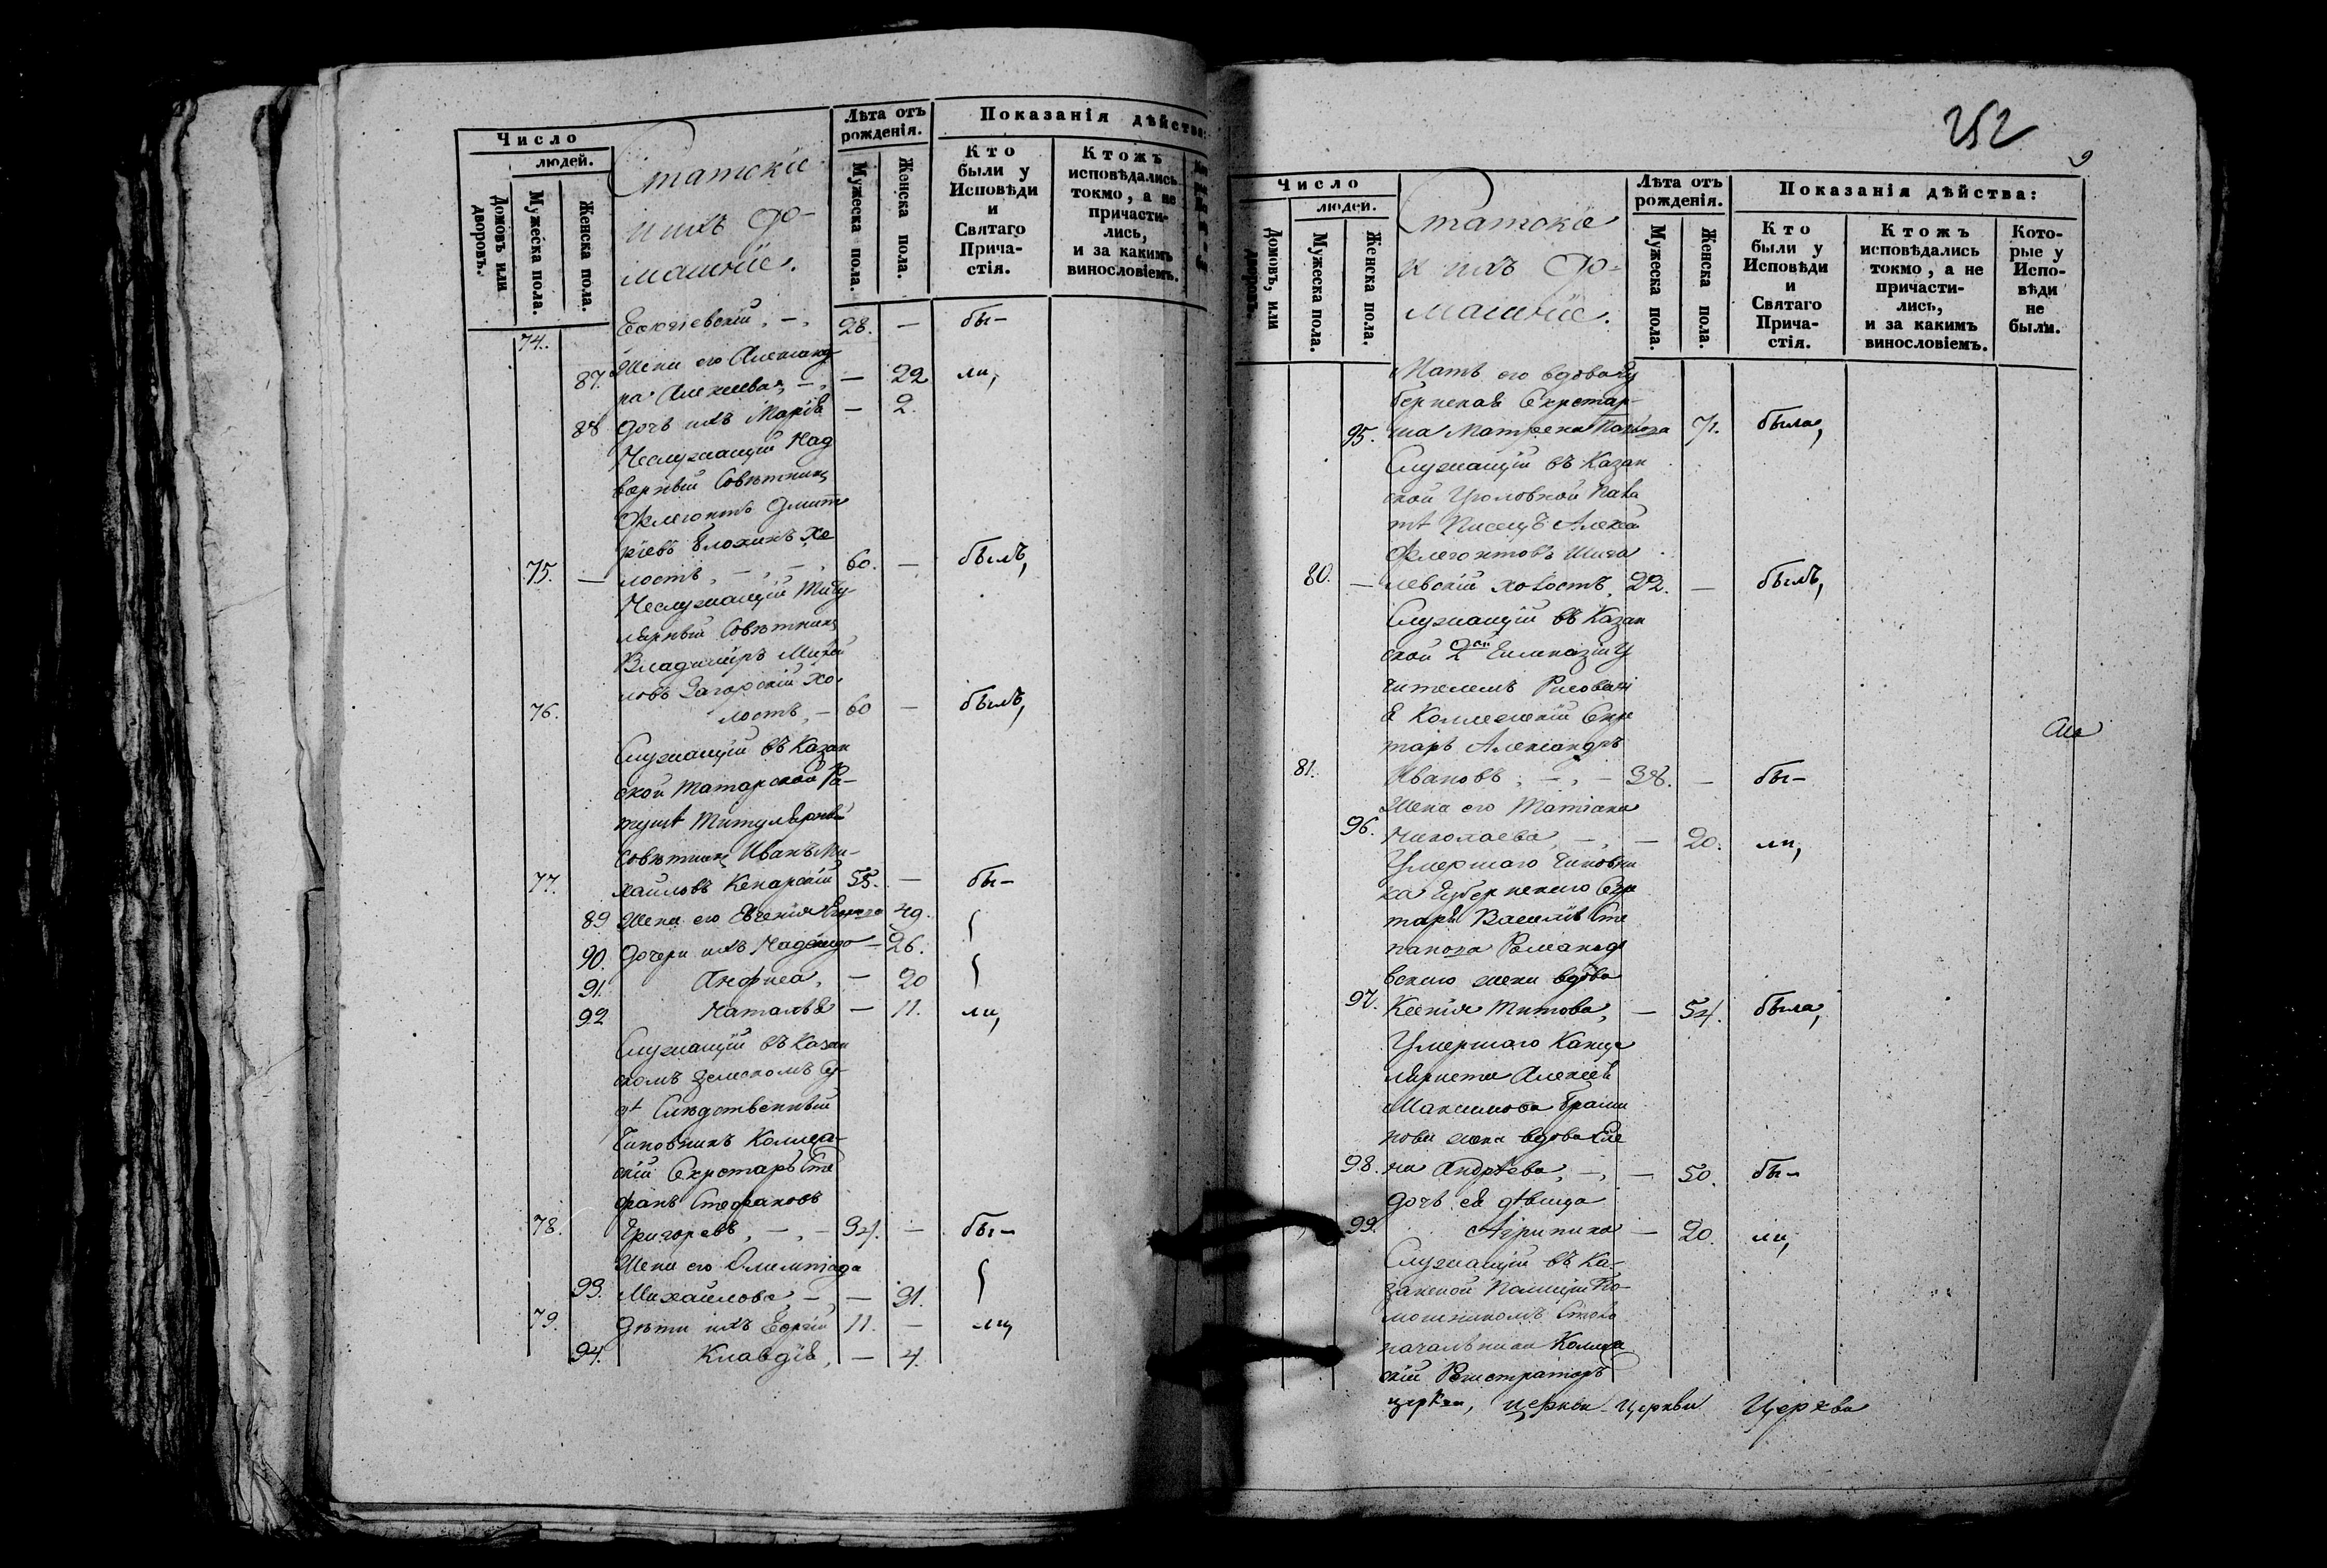 Число
людей.
Домовъ или дворовъ.
Мужеска пола.
Женска пола.
Статскіе
и ихъ До-
машніе.
Лѣта отъ рожденія.
Мужеска пола.
Женска пола.
Показанія дѣйства:
Кто были у Исповѣди и Святаго Прича-стія.
Ктожъ исповѣдались токмо, а не причасти-лись, и за какимъ винословіемъ.
74. 28. — бы-
Жена его Александ-
87. ра Алексѣева, — — 22 ли,
88 Дочь ихъ Марія — 2.
Неслужащій Над
ворный Совѣтникъ
Флегонтъ Дмит
ріевъ Блохинъ Хо
75. — лостъ, — 60. — былъ,
Неслужащій Титу-
лярный Совѣтникъ
Владиміръ Михай
ловъ Загорскій Хо-
76. лостъ, — 60 — былъ,
Служащій въ Казан
ской Татарской Ра-
тушѣ Титулярный
Совѣтникъ Иванъ Ми-
77. хайловъ Кенарскій 55. — бы-
89 Жена его Евгенія 49.
90. Дочери ихъ Надежда — 26.
91. Анфиса, — 20
92 Наталья — 11. ли,
Служащій въ Казан
скомъ Земскомъ Су-
дѣ Слѣдственный
Чиновникъ Коллеж-
скій Секретарь Сте
фанъ Стефановъ
78. Григорьевъ, — 34. — бы-
Жена его Олимпіада
93. Михайлова — — 31.
79. Дѣти ихъ Георгій 11. — ли,
94. Клавдія, — 4.
252
9
Число
людей.
Домовъ, или дворовъ.
Мужеска пола.
Женска пола.
Статскіе
и ихъ До-
машніе.
Лѣта отъ рожденія.
Мужеска пола.
Женска пола.
Показанія дѣйства:
Кто были у Исповѣди и Святаго Прича-стія.
Ктожъ исповѣдались токмо, а не причасти-лись, и за какимъ винословіемъ.
Кото-рые у Испо-вѣди не были.
Мать его вдова Гу
бернская Секретар-
95. ша Матрена 71. была,
Служащій въ Казан
ской Уголовной Пала
тѣ Писецъ Алексѣй
Флегонтовъ Шига
80. — левскій холостъ, 22. — былъ,
Служащій въ Казан
ской 2ой Гимназіи У
чителемъ Рисовані
я Коллежскій Секре
тарь Александръ
81. Ивановъ, — 38. — бы-
Жена его Татіана
96. Николаева, — — 20. ли,
Умершаго Чиновни
ка Губернскаго Секре
таря Василія Сте
панова Романов
скаго жена вдова
97. Ксенія Титова, — 54. была,
Умершаго Канце
ляриста Алексѣя
Максимова
нова жена вдова Еле
98. на Андреева, — — 50. бы-
дочь ея дѣвица
99. Агрипина — 20. ли,
Служащій въ Ка-
занской Полиціи По-
мошникомъ Столо
начальника Коллеж
скій Регистраторъ
церкви, церкви церкви Церкви